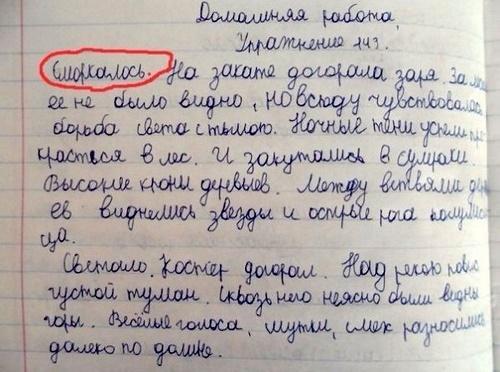 Домашняя работа
Упражнение 143.
Сморкалось. На закате догорала заря. За
ее не было видно, но всюду чувствовалась
борьба света с тьмою. Ночные тени успели
красться в лес. И закутались в сумраки.
Высокие кроны деревьев. Между ветвями
ев виднелись звезды и острые рога полумеся
ца.
Светало. Костер догорал. Над рекою
густой туман. Сквозь него неясно были видны
горы. Весёлые голоса, шутки, смех разносились
далеко по долине.